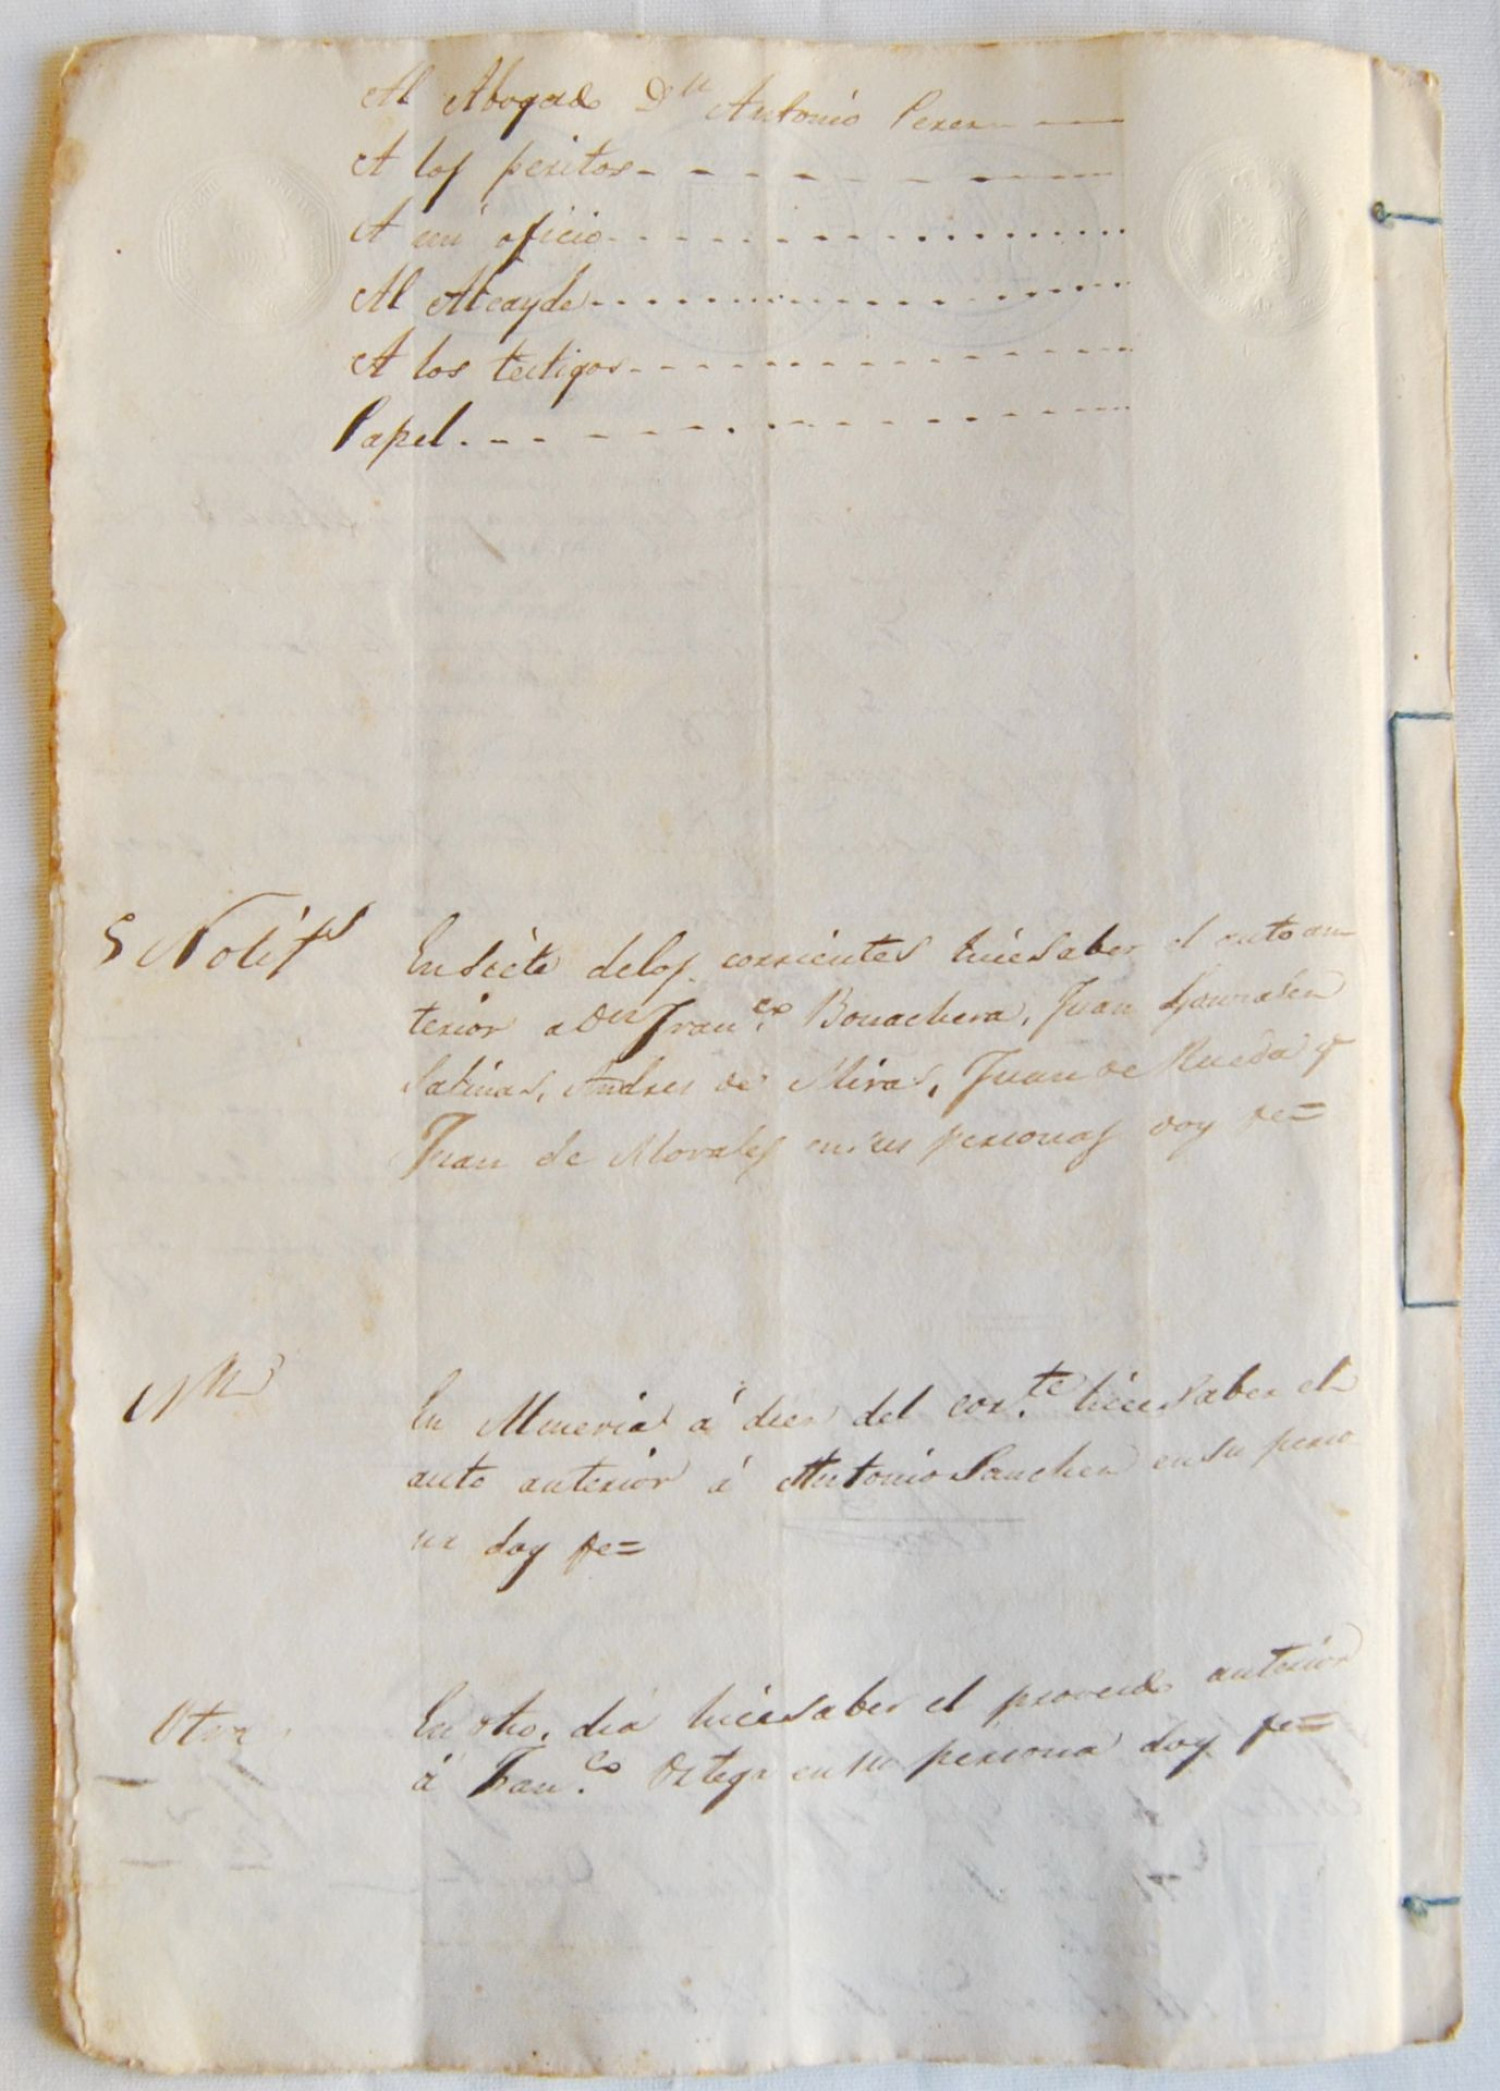 Al Abogado Dn Antonio Perez
A los peritos
A mi oficio
Al Alcayde
A los testigos
Papel
5 Notifs
En siete delos corrientes hice saber el auto an-
terior a Dn Franco Bonachera, Juan Gonzalez
Salinas, Andres de Miras, Juan de Rueda y
Juan de Morales en sus personas doy fe=
En Almeria á diez del corte hice saber el
auto anterior á Antonio Sanchez en su perso
na doy fe=
Otra
En dho. dia hice saber el proveido anterior
á Franco Ortega en su persona doy fe=